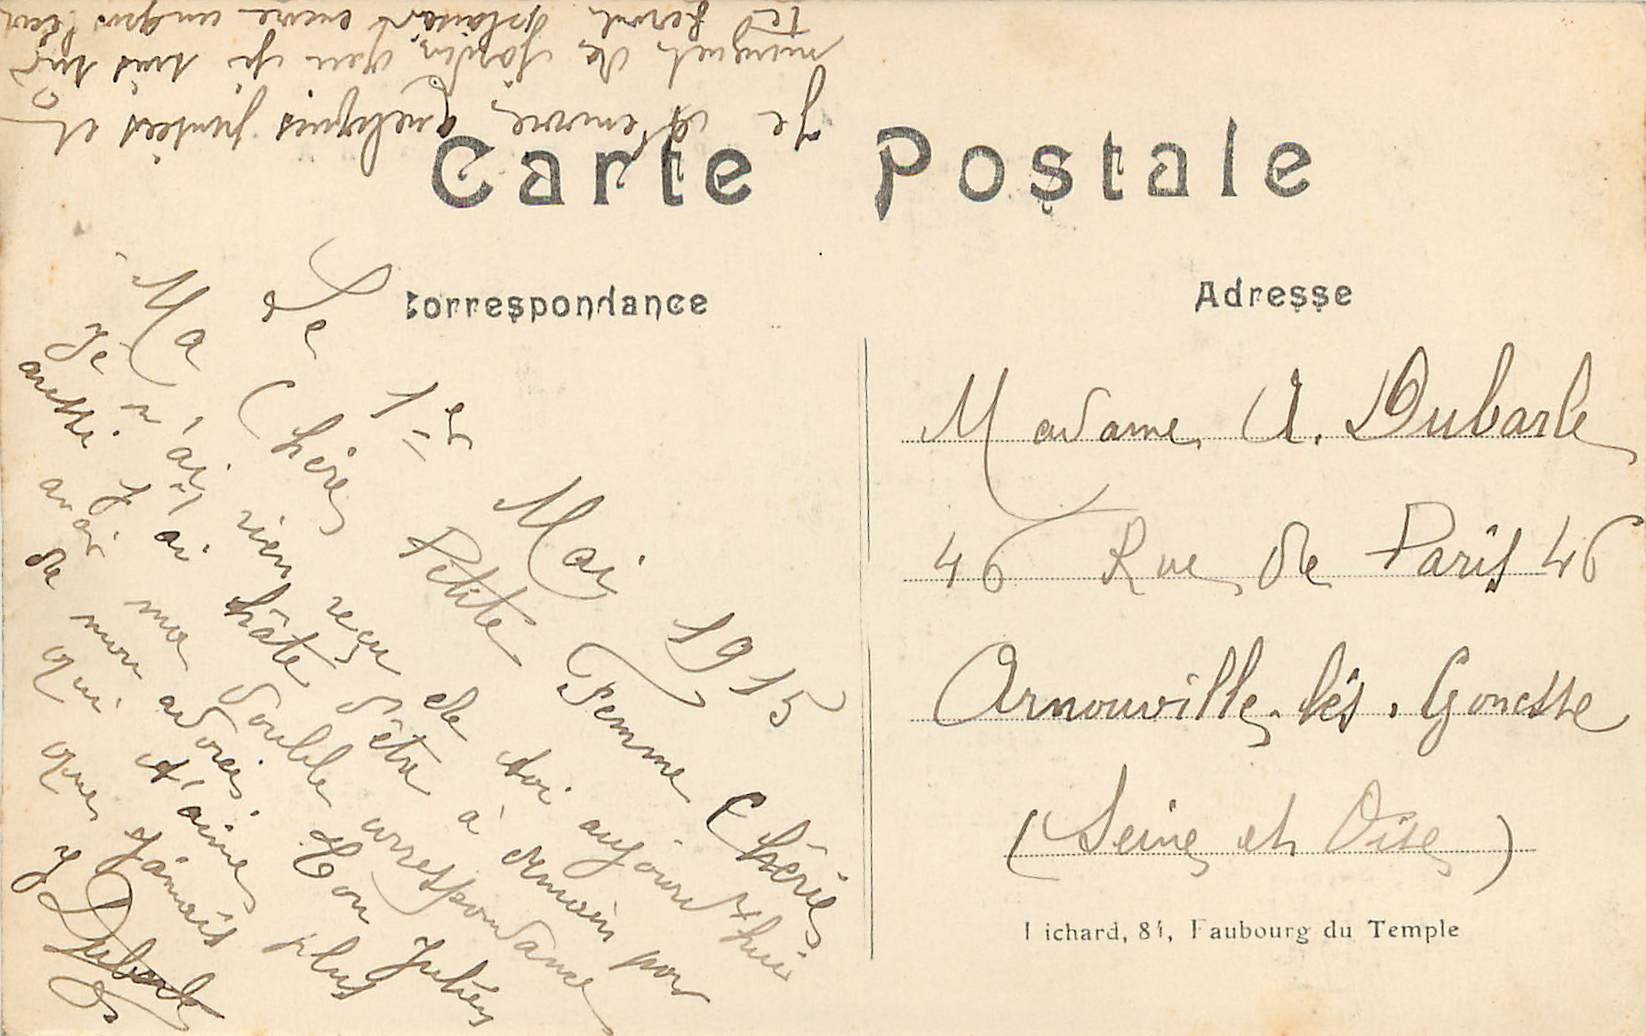 Carte Postale
Correspondance
Adresse
Le 1er Mai 1915
Ma Chère Petite Femme Chérie
Je n'ai rien reçu de toi aujourd'hui
aussi j'ai hâte d'être à demain pour
avoir ma double correspondance
de mon adorée. Ton Julien
qui t'aime plus
que jamais
J Dubarle
Je t'envoie quelques pensées et
muguet de jardin, que je suis sûr
te feront plaisir encore un gros
Madame A. Dubarle
46 Rue de Paris 46
Arnouville-lès-Gonesse
(Seine et Oise)
Lichard, 84, Faubourg du Temple